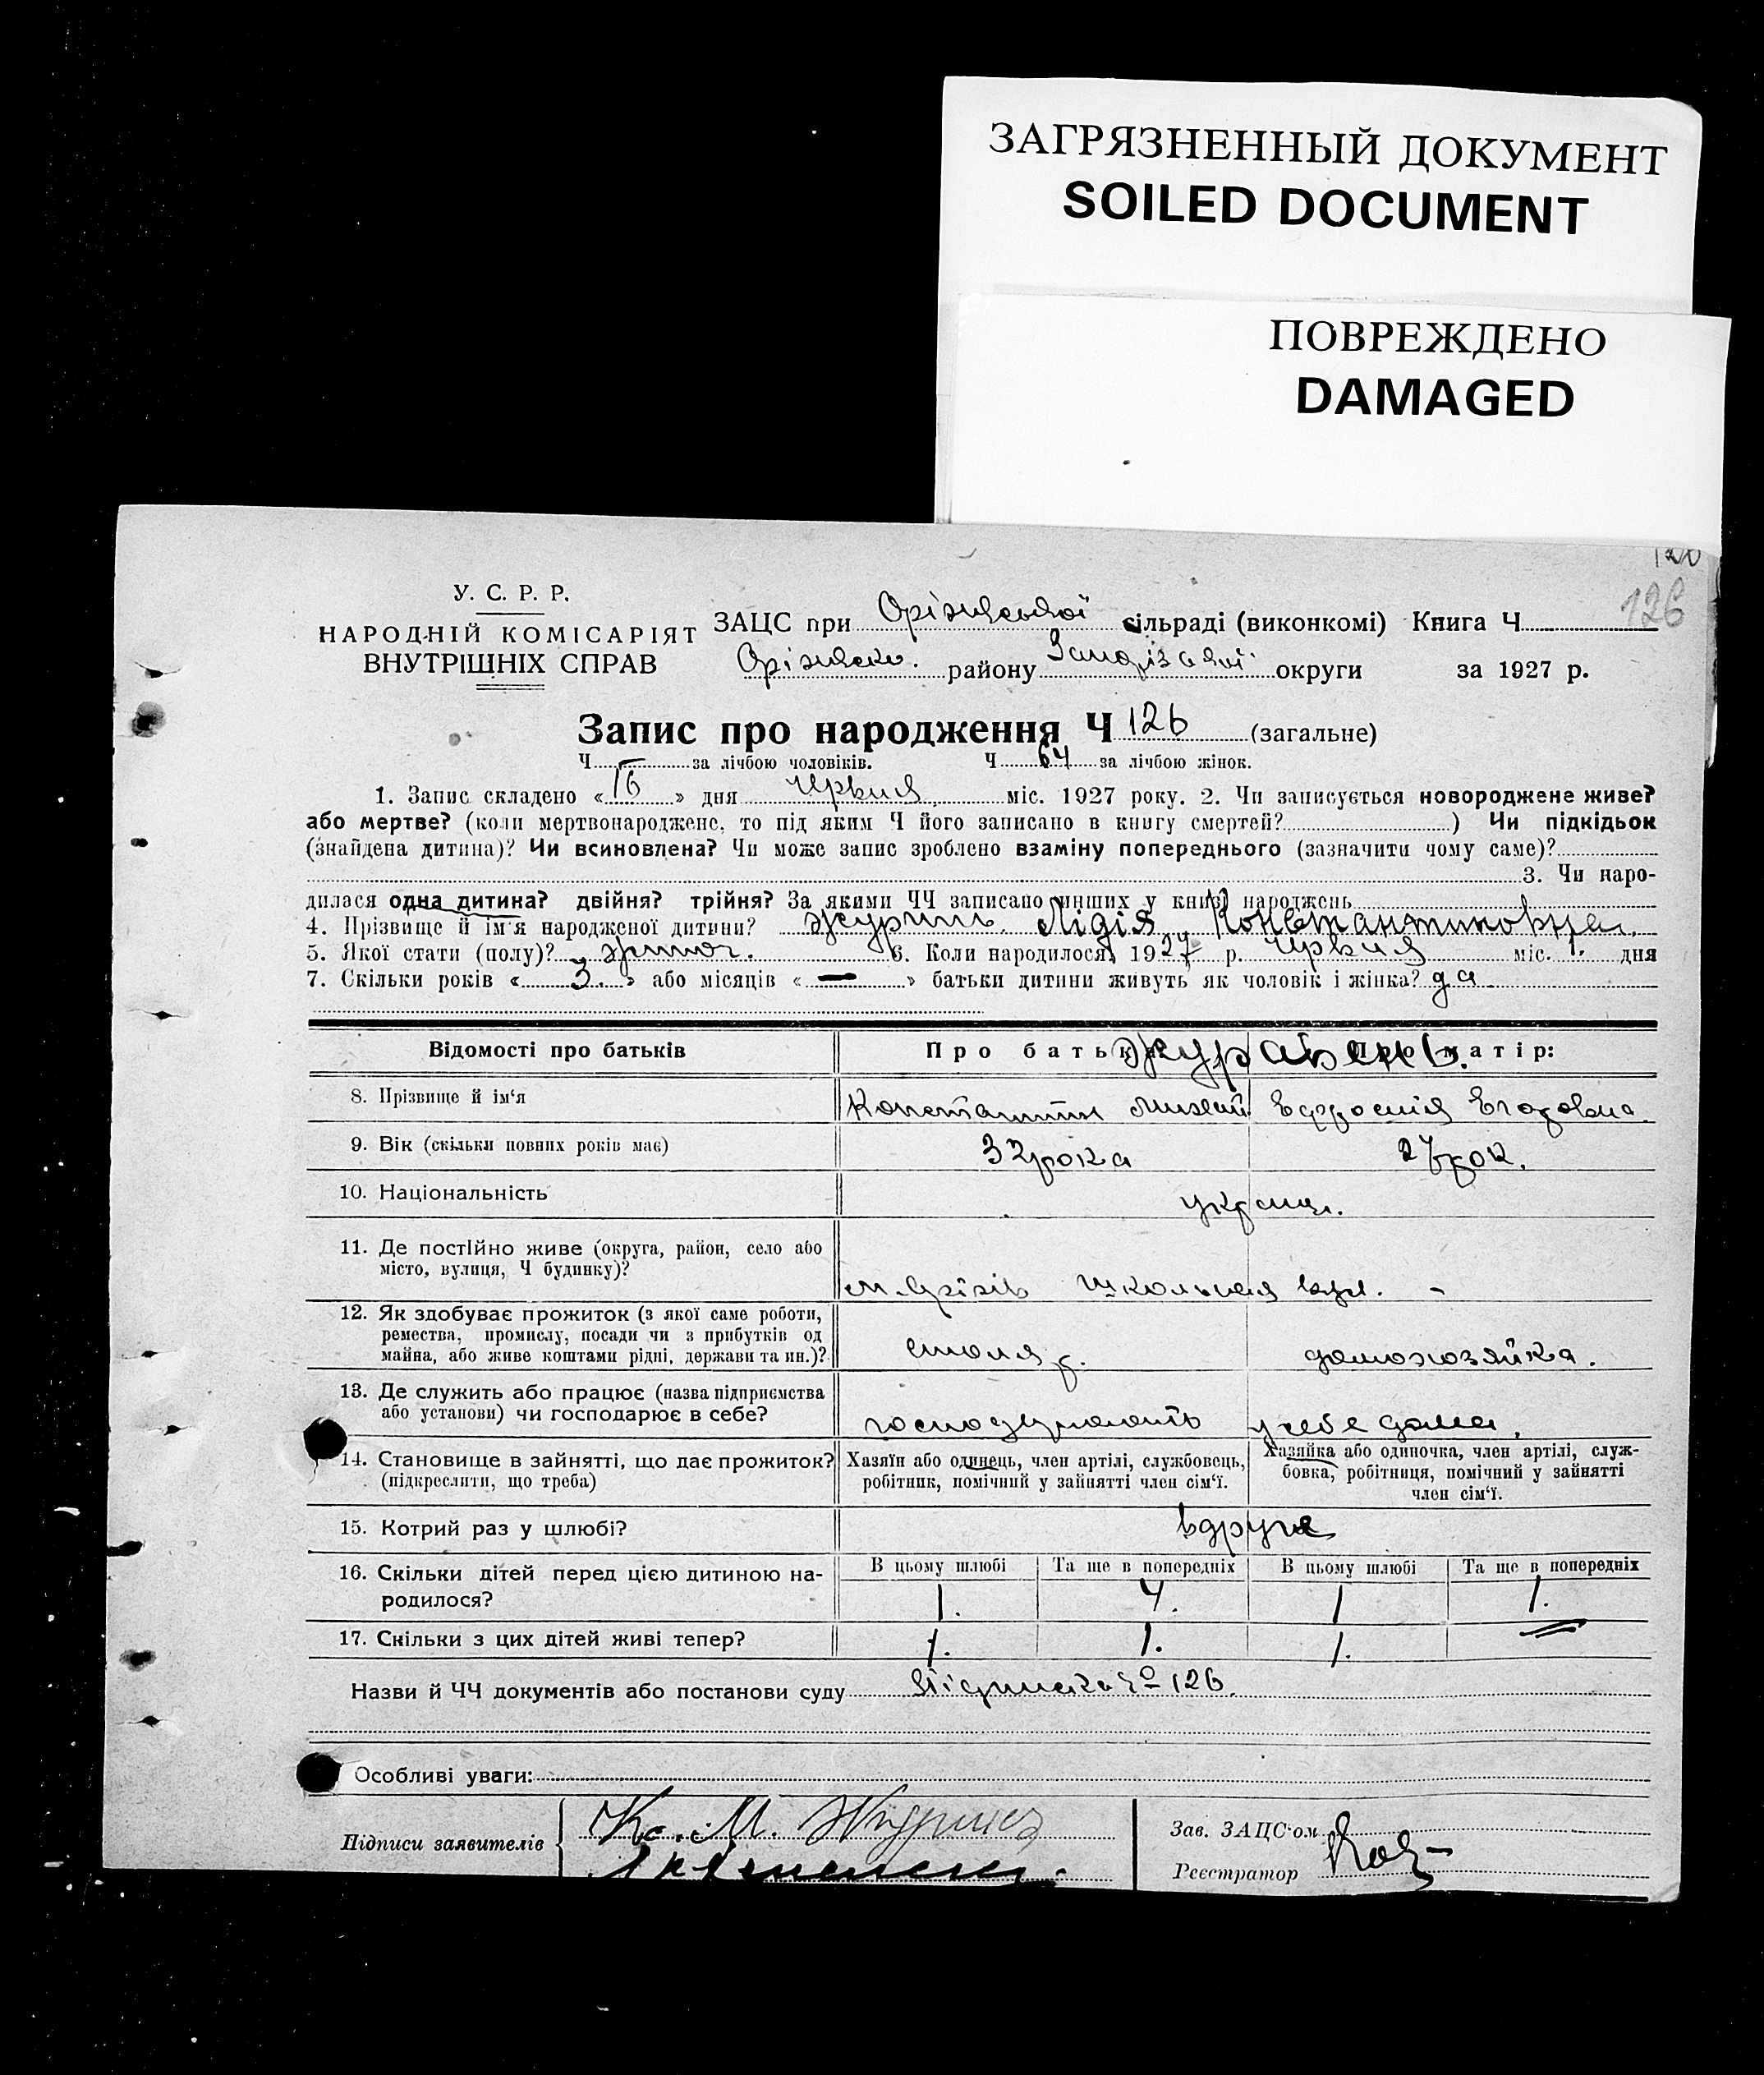 ЗАГРЯЗНЕННЫЙ ДОКУМЕНТ
SOILED DOCUMENT
ПОВРЕЖДЕНО
DAMAGED
126
У. С. Р. Р.
НАРОДНІЙ КОМІСАРІЯТ
ВНУТРІШНІХ СПРАВ
ЗАЦС при Оріхівської сільраді (виконкомі) Книга Ч
Оріхівско. району округи за 1927 р.
Запис про народження Ч 126 (загальне)
Ч за лічбою чоловіків. Ч 64 за лічбою жінок.
1. Запис складено «16» дня Червня міс. 1927 року. 2. Чи записується новороджене живе?
або мертве? (коли мертвонароджене, то під яким Ч його записано в книгу смертей? ) Чи підкідьок
(знайдена дитина)? Чи всиновлена? Чи може запис зроблено взаміну попереднього (зазначити чому саме)?
3. Чи наро-
дилася одна дитина? двійня? трійня? За якими ЧЧ записано инших у книзі народжень
4. Прізвище й ім'я народженої дитини? Лідія Константиновна.
5. Якої стати (полу)? жіноч. 6. Коли народилося, 1927 р. Червня міс. 1. дня
7. Скільки років «3.» або місяців «—» батьки дитини живуть як чоловік і жінка? да
Відомості про батьків
Про батька: Про матір:
8. Прізвище й ім'я Константин Михай Ефросинія Егоровна
9. Вік (скільки повних років має) 32 рока 27 рок.
10. Національність україн.
11. Де постійно живе (округа, район, село або
місто, вулиця, Ч будинку)? м. Оріхів Школьная вул. -
12. Як здобуває прожиток (з якої саме роботи,
ремества, промислу, посади чи з прибутків од
майна, або живе коштами рідні, держави та ин.)? столяр. домохозяйка.
13. Де служить або працює (назва підприємства
або установи) чи господарює в себе? у себе дома.
14. Становище в зайнятті, що дає прожиток?
(підкреслити, що треба)
Хазяїн або одинець, член артілі, службовець,
робітник, помічний у зайнятті член сім'ї.
Хазяйка або одиночка, член артілі, служ-
бовка, робітниця, помічний у зайнятті
член сім'ї.
15. Котрий раз у шлюбі? вдруге
16. Скільки дітей перед цією дитиною на-
родилося?
В цьому шлюбі Та ще в попередніх В цьому шлюбі Та ще в попередніх
1. 4. 1 1.
17. Скільки з цих дітей живі тепер? 1. 1. 1.
Назви й ЧЧ документів або постанови суду Підписка Ч 126.
Особливі уваги:
Підписи заявителів К. М.
Зав. ЗАЦС'ом
Реєстратор